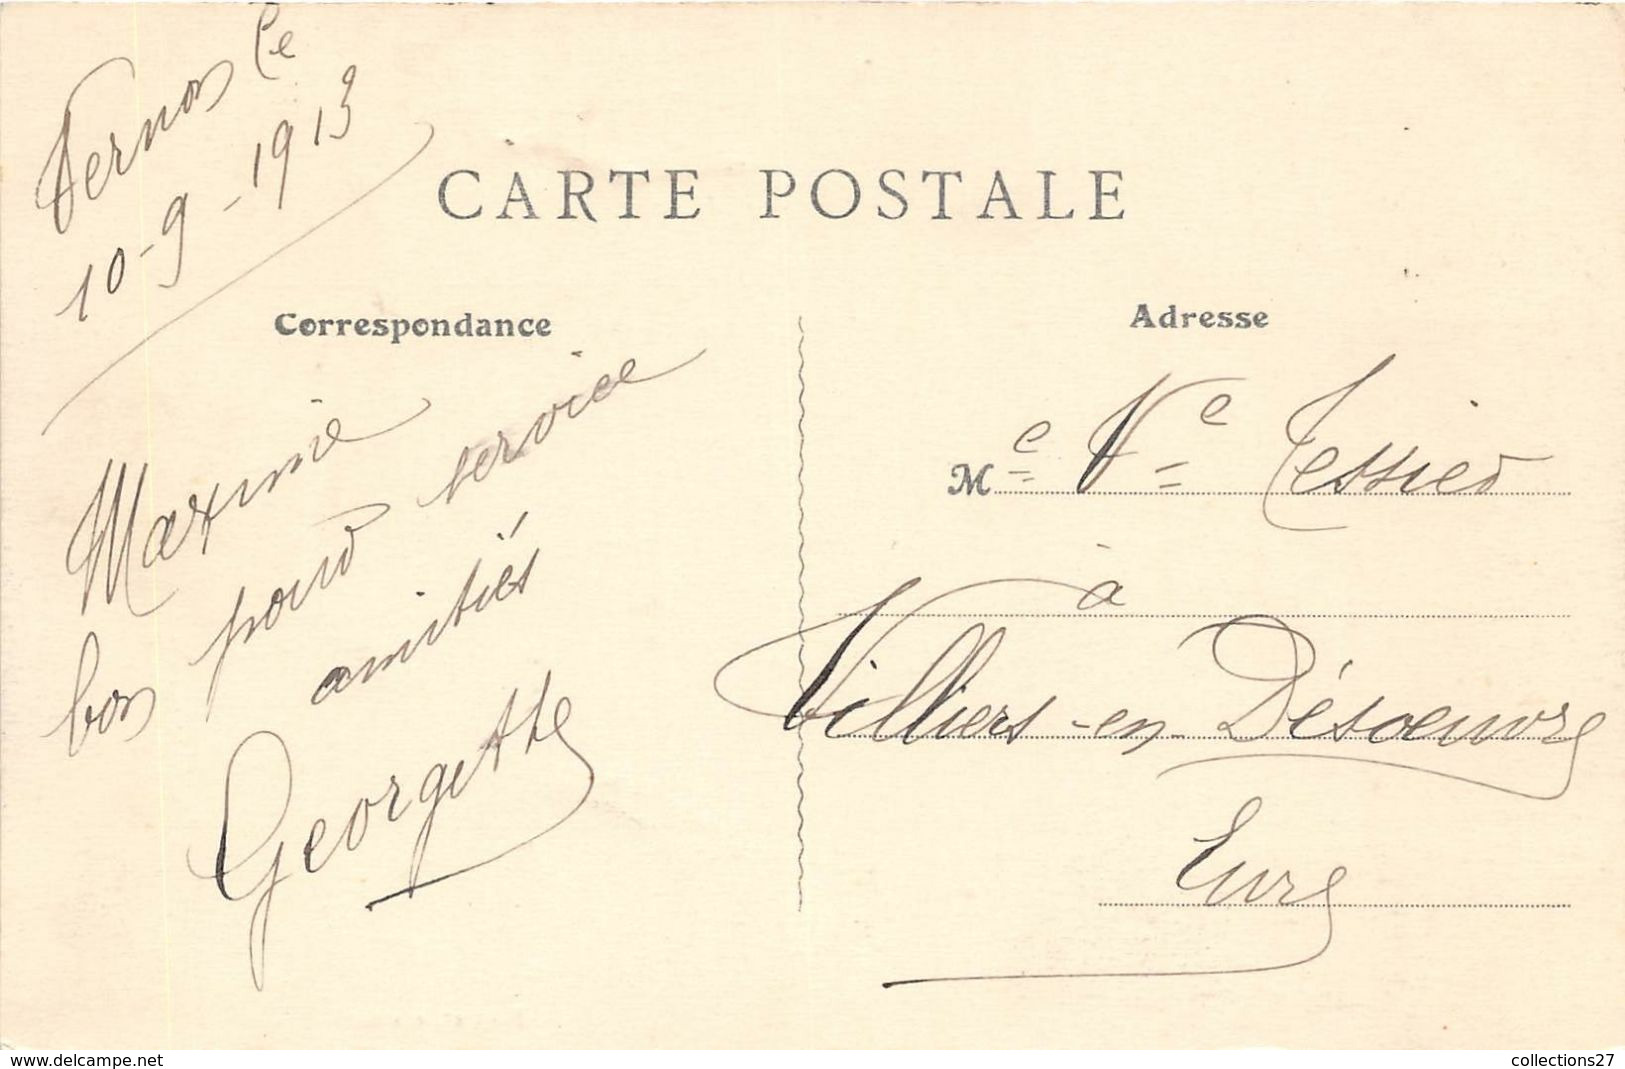 Vernon le
10-9-1913
CARTE POSTALE
Correspondance
Maxime
bon pour service
amitiés
Georgette
Adresse
Me Ve Tessier
à
Villiers-en-Désoeuvre
Eure
www.delcampe.net
collections27